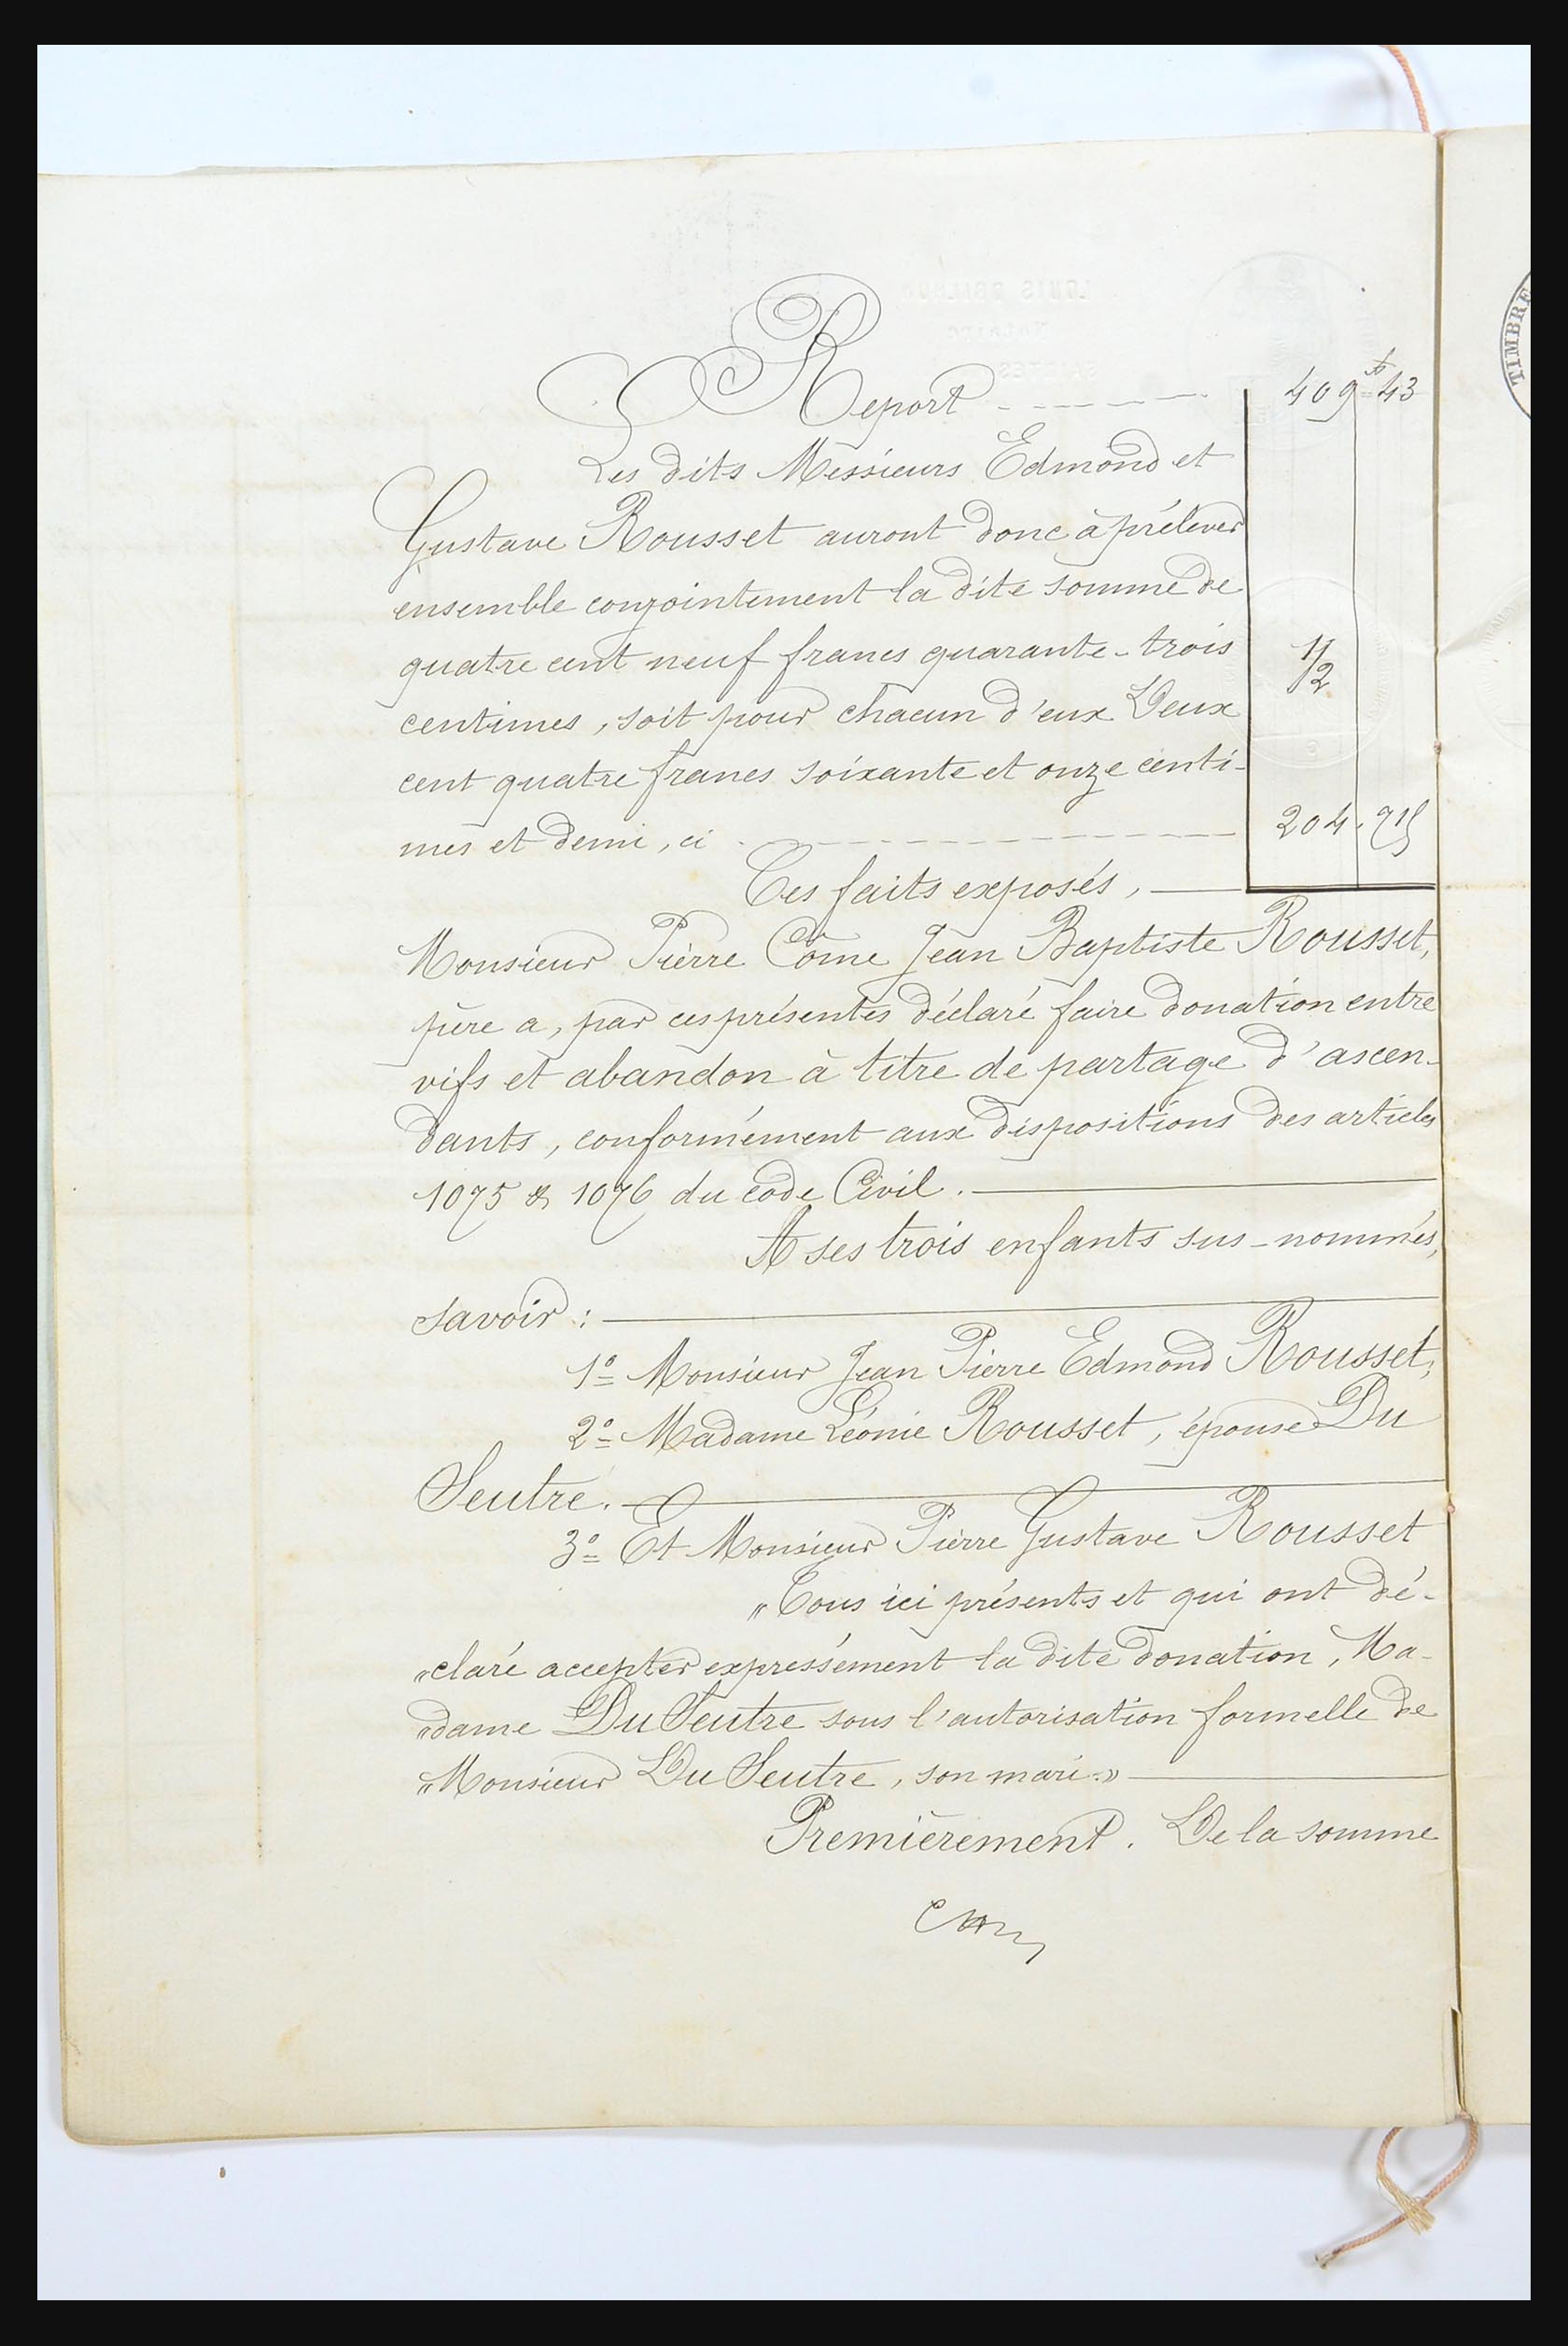 Report 409 43
Les dits Messieurs Edmond et
Gustave Rousset auront donc à prélever
ensemble conjointement la dite somme de
quatre cent neuf francs quarante-trois 1/2
centimes, soit pour chacun d'eux Deux
cent quatre francs soixante et onze centi-
mes et demi, ci 204. 715
Ces faits exposés,
Monsieur Pierre Côme Jean Baptiste Rousset,
père a, par ces présentes déclaré faire donation entre
vifs et abandon à titre de partage d'ascen-
dants, conformément aux dispositions des articles
1075 & 1076 du code Civil.
A ses trois enfants sus-nommés,
savoir :
1º Monsieur Jean Pierre Edmond Rousset,
2º Madame Léonie Rousset, épouse Du
Seutre.
3º Et Monsieur Pierre Gustave Rousset
"Tous ici présents et qui ont dé-
"claré accepter expressément la dite donation, Ma-
"dame Du Seutre sous l'autorisation formelle de
"Monsieur Du Seutre, son mari."
Premièrement. De la somme
TIMBRE